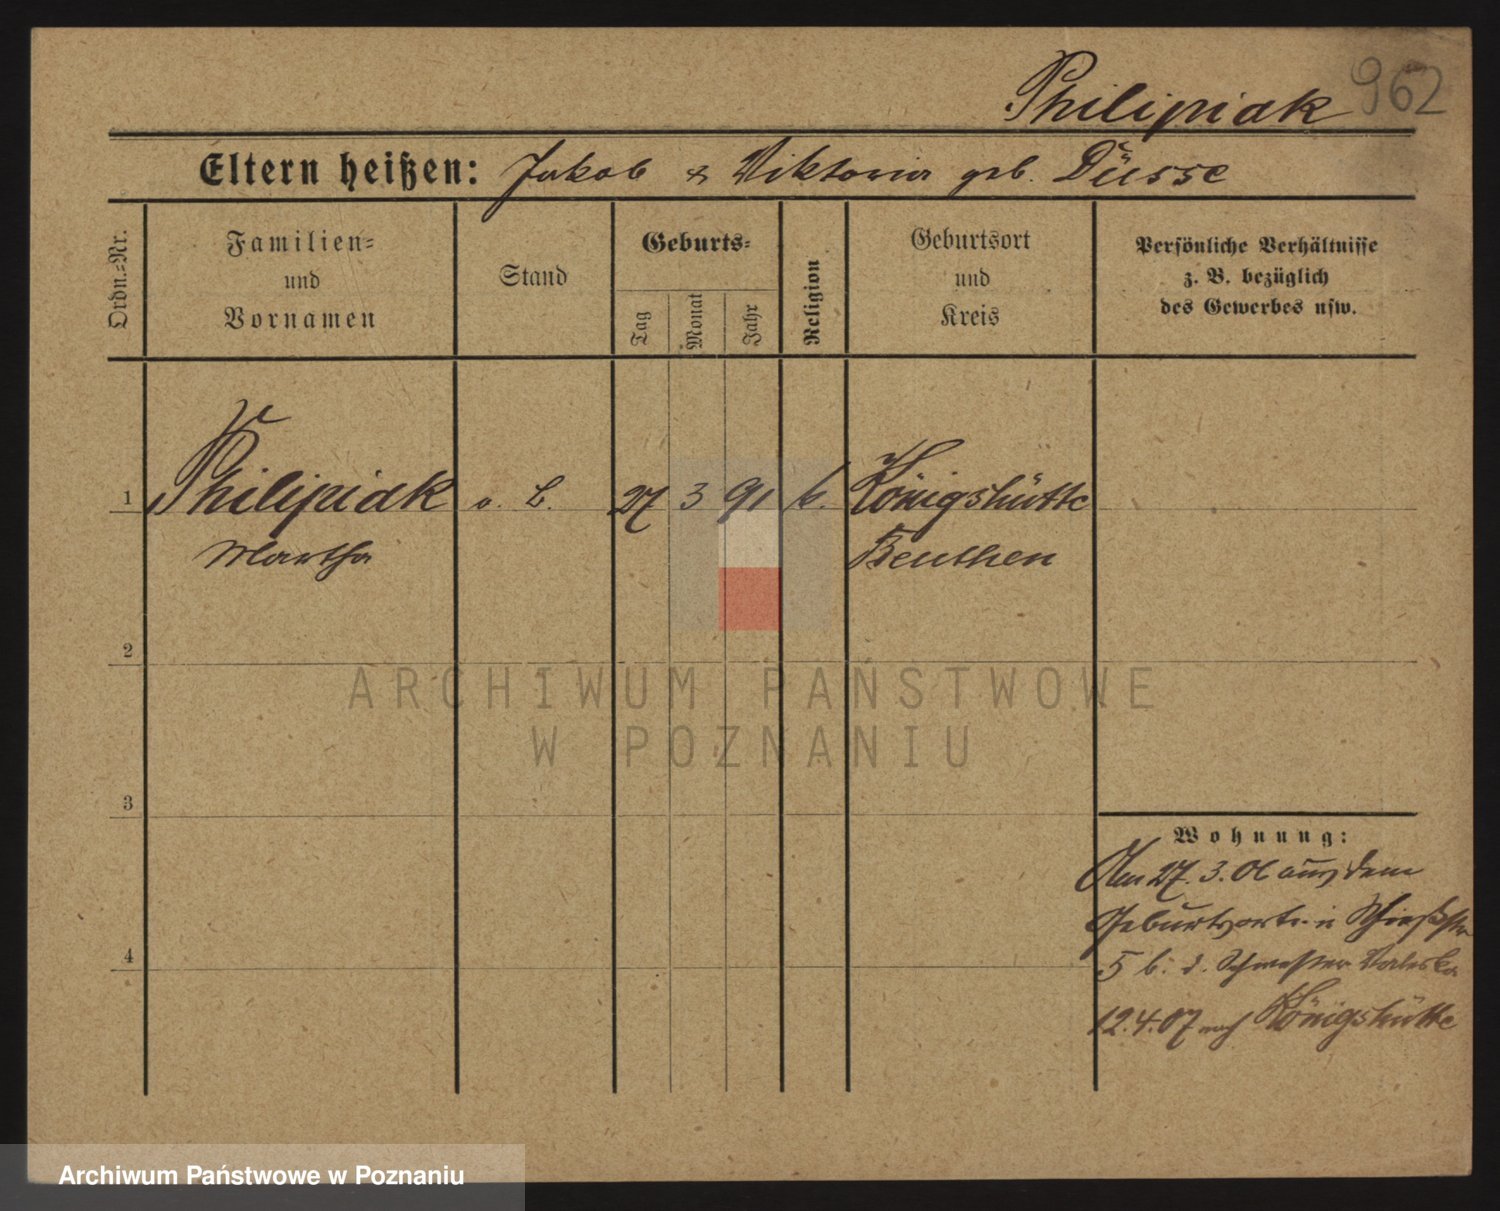 Philipiak 962
Eltern heißen: Jakob & Viktoria geb. Düsse
Ordn.=Nr.
Familien=
und
Vornamen
Stand
Geburts=
Tag
Monat
Jahr
Religion
Geburtsort
und
Kreis
Persönliche Verhältnisse
z. B. bezüglich
des Gewerbes usw.
1 Philipiak o. B. 27 3 91 k. Königshütte
Martha Beuthen
2
3
4
Wohnung:
Am 27. 3. 06 aus dem
Geburtsorte n Schießstr
5 b. d. Schwester Valeska
12.4.07 nach Königshütte
ARCHIWUM PAŃSTWOWE
W POZNANIU
Archiwum Państwowe w Poznaniu